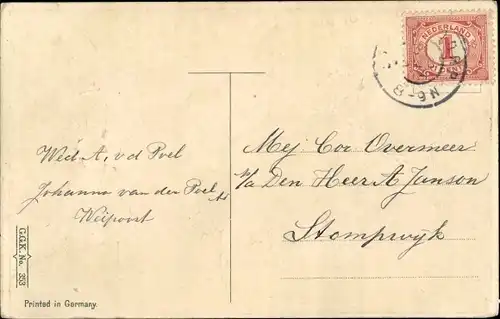 NEDERLAND
1
CENT
N 6-8
Wed. A. v d Poel
Johanna van der Poel Ad
Weipoort
Mej Cor Overmeer
p/a Den Heer A Janson
Stompwyk
G.G.K. No. 353
Printed in Germany.